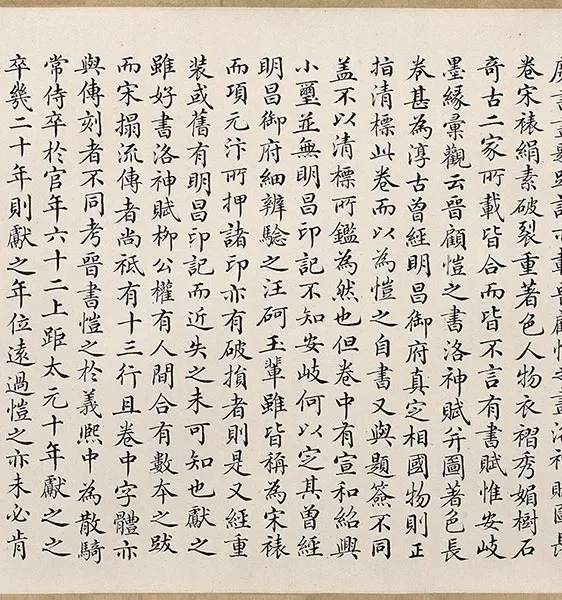 載晉顧愷之畫洛神賦圖長
卷宋裱絹素破裂重著色人物衣褶秀媚樹石
奇古二家所載皆合而皆不言有書賦惟安岐
墨緣彙觀云晉顧愷之書洛神賦并圖著色長
卷甚為淳古曾經明昌御府真定相國物則正
指清標此卷而以為愷之自書又與題簽不同
蓋不以清標所鑑為然也但卷中有宣和紹興
小璽並無明昌印記不知安岐何以定其曾經
明昌御府細辨騐之汪砢玉輩雖皆稱為宋裱
而項元汴所押諸印亦有破損者則是又經重
裝或舊有明昌印記而近失之未可知也獻之
雖好書洛神賦柳公權有人間合有數本之跋
而宋搨流傳者尚祇有十三行且卷中字體亦
與傳刻者不同考晉書愷之於義熈中為散騎
常侍卒於官年六十二上距太元十年獻之之
卒幾二十年則獻之年位遠過愷之亦未必肯